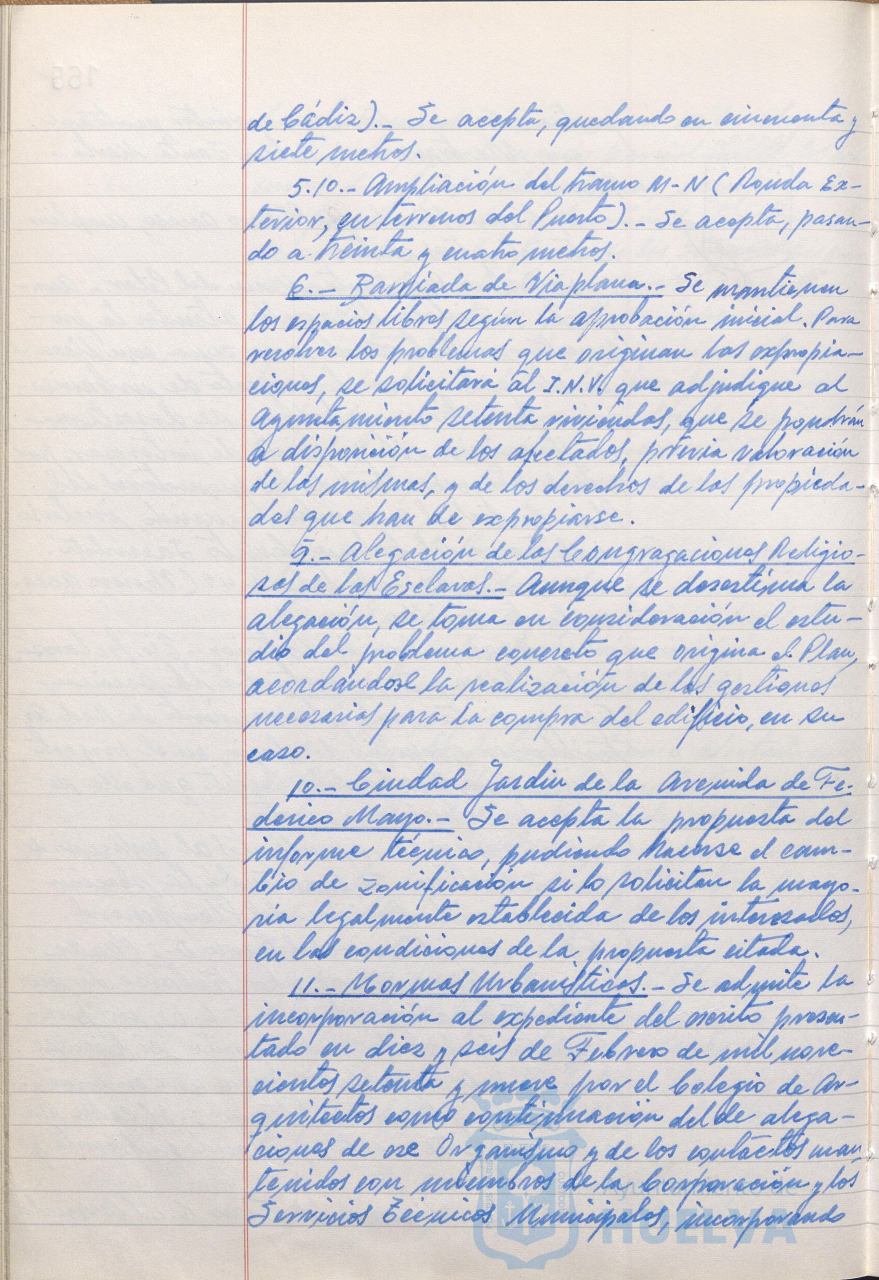 de Cádiz).- Se acepta, quedando en cincuenta y
siete metros.
5.10.- Ampliación del tramo M-N (Ronda Ex-
terior, en terrenos del Puerto).- Se acepta, pasan-
do a treinta y cuatro metros.
6.- Barriada de Viaplana.- Se mantienen
los espacios libres según la aprobación inicial. Para
resolver los problemas que originan las expropia-
ciones, se solicitará al I.N.V. que adjudique al
Ayuntamiento setenta viviendas, que se pondrán
a disposición de los afectados, previa valoración
de las mismas, y de los derechos de las propieda-
des que han de expropiarse.
9.- Alegación de las Congregaciones Religio-
sas de las Esclavas.- Aunque se desestima la
alegación, se toma en consideración el estu-
dio del problema concreto que origina el Plan,
acordándose la realización de las gestiones
necesarias para la compra del edificio, en su
caso.
10.- Ciudad Jardin de la Avenida de Fe-
derico Mayo.- Se acepta la propuesta del
informe técnico, pudiendo hacerse el cam-
bio de zonificación si lo solicitan la mayo-
ría legalmente establecida de los interesados,
en las condiciones de la propuesta citada.
11.- Normas Urbanísticas.- Se admite la
incorporación al expediente del escrito presen-
tado en diez y seis de Febrero de mil nove-
cientos setenta y nueve por el Colegio de Ar-
quitectos como continuación del de alega-
ciones de ese Organismo y de los contactos man-
tenidos con miembros de la Corporación y los
Servicios Técnicos Municipales, incorporando
HUELVA